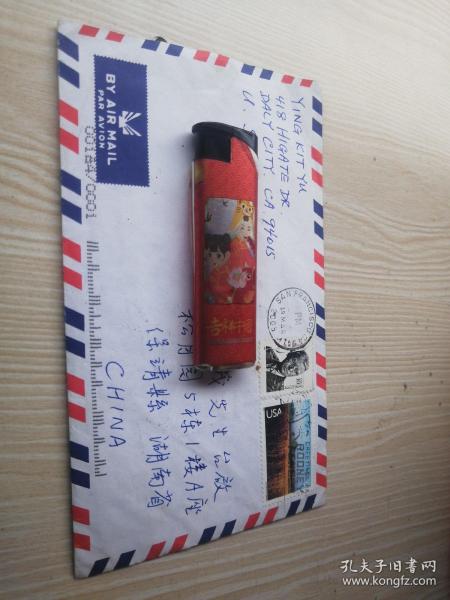 YING KIT YU
418 HIGATE DR.
DALY CITY. CA 94015
U.
BY AIR MAIL
PAR AVION
00184/0001
SAN FRANCISCO
PM
USA
RODNEY
先生 公啟
松月園 5栋1楼A座
保靖縣 湖南省
CHINA
孔夫子旧书网
www.kongfz.com